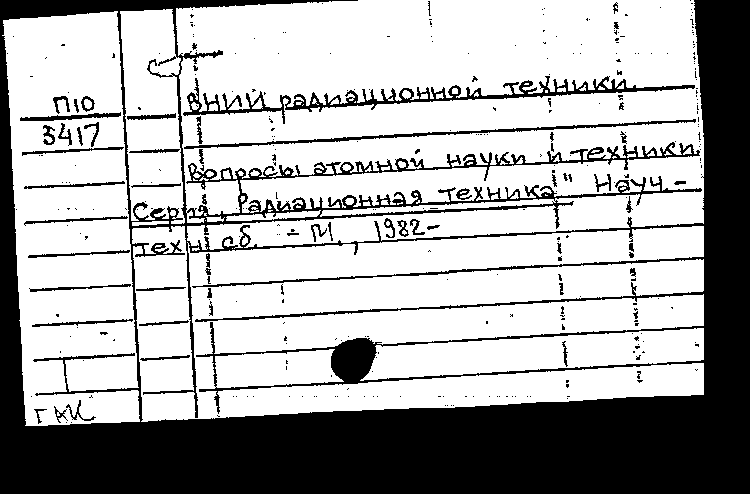 П10
3417
ВНИИ радиационной техники.
Вопросы атомной науки и техники.
Серия „Радиационная техника" Науч.-
техн. сб. - М., 1982-
ГАК